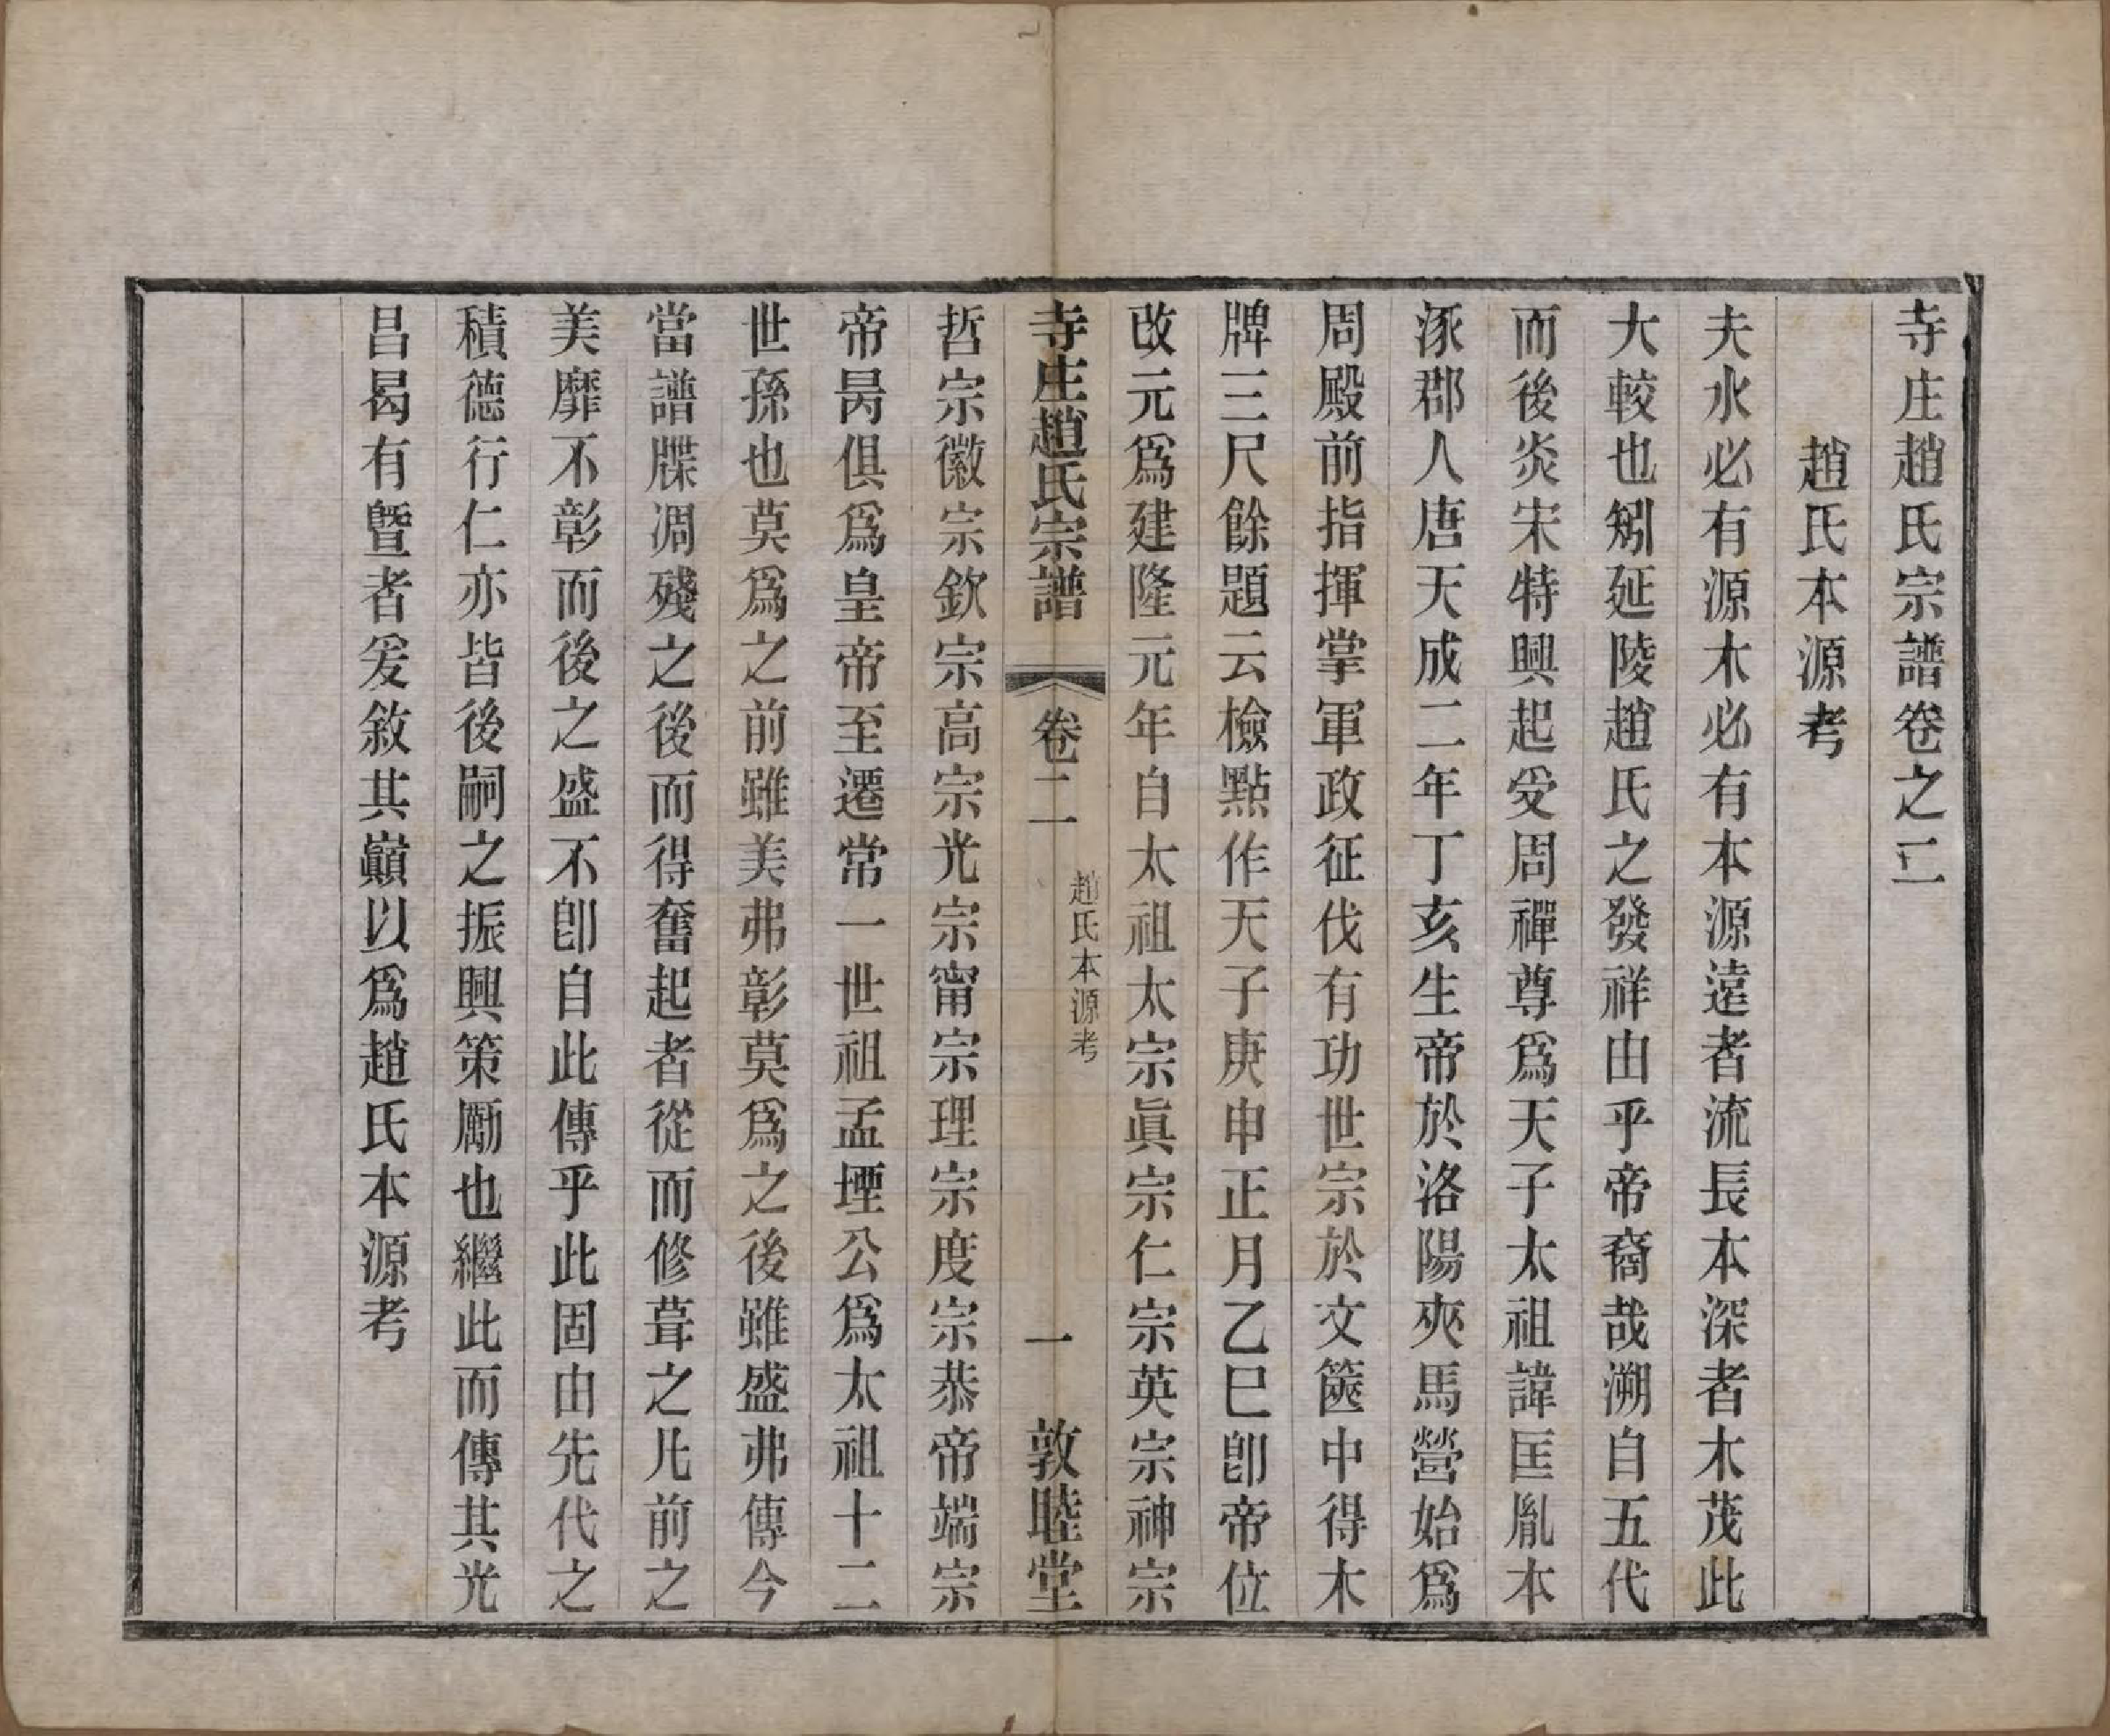 寺庄趙氏宗譜卷之二
趙氏本源考
夫水必有源木必有本源遠者流長本深者木茂此
大較也矧延陵趙氏之發祥由乎帝裔哉溯自五代
而後炎宋特興起受周禪尊爲天子太祖諱匡胤本
涿郡人唐天成二年丁亥生帝於洛陽夾馬營始爲
周殿前指揮掌軍政征伐有功世宗於文篋中得木
牌三尺餘題云檢點作天子庚申正月乙巳卽帝位
改元爲建隆元年自太祖太宗眞宗仁宗英宗神宗
寺庄趙氏宗譜 卷二 趙氏本源考 一 敦睦堂
哲宗徽宗欽宗高宗光宗甯宗理宗度宗恭帝端宗
帝昺俱爲皇帝至遷常一世祖孟堙公爲太祖十二
世孫也莫爲之前雖美弗彰莫爲之後雖盛弗傳今
當譜牒凋殘之後而得奮起者從而修葺之凡前之
美靡不彰而後之盛不卽自此傳乎此固由先代之
積德行仁亦皆後嗣之振興策勵也繼此而傳其光
昌曷有曁者爰敘其巔以爲趙氏本源考